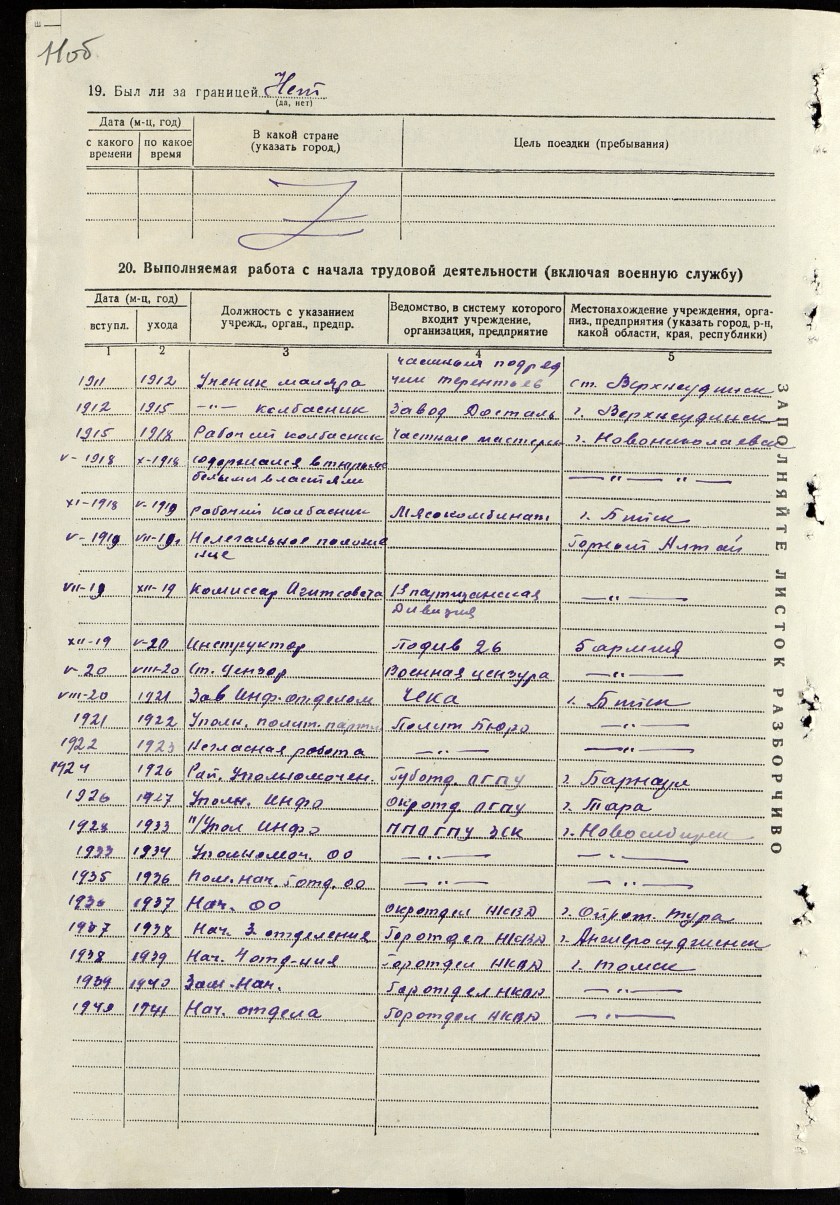 11об
19. Был ли за границей Нет
(да, нет)
Дата (м-ц, год)
с какого времени
по какое время
В какой стране
(указать город.)
Цель поездки (пребывания)
20. Выполняемая работа с начала трудовой деятельности (включая военную службу)
Дата (м-ц, год)
вступл.
ухода
Должность с указанием
учрежд., орган., предпр.
Ведомство, в систему которого
входит учреждение,
организация, предприятие
Местонахождение учреждения, орга-
низ., предприятия (указать город, р-н,
какой области, края, республики)
1 2 3 4 5
частный подряд
1911 1912 Ученик маляра чик Терентьев ст. Верхнеудинск
1912 1915 -"- колбасник Завод Досталь г. Верхнеудинск
1915 1918 Рабочий колбасник Частные мастерск г. Новониколаевск
V-1918 X-1918 содержался в тюрьме
белыми властями — " — " —
XI-1918 V-1919 рабочий колбасник Мясокомбинат г. Бийск
V-1919 VII-19. Нелегальное положе Горный Алтай
ние
VII-19 XII-19 Комиссар Агитсовета 1я партизанская — " —
Дивизия
XII-19 V-20 Инструктор Подив 26 5 армия
V-20 VIII-20 Ст. Цензор Военная цензура — " —
VIII-20 1921 Зав Инф. отделом Чека г. Бийск
1921 1922 Уполн. полит. парти Полит Бюро — " —
1922 1923 Негласная работа — " — — " —
1924 1926 Рай. Уполномочен. Губотд. ОГПУ г. Барнаул
1926 1927 Уполн. Инфо Окротд. ОГПУ г. Тара
1928 1933 П/Упол Инфо ПП ОГПУ ЗСК г. Новосибирск
1933 1934 Уполномоч. ОО — " — — " —
1935 1936 Пом. нач. 5 отд. ОО — " — — " —
1936 1937 Нач. ОО Окротдел НКВД г. Ойрот. Тура
1937 1938 Нач. 3 отделения Горотдел НКВД г. Анжеросудженск
1938 1939 Нач. 4 отд-ния Горотдел НКВД г. Томск
1939 1940 Зам. Нач. Горотдел НКВД — " —
1940 1941 Нач. отдела Горотдел НКВД — " —
ЗАПОЛНЯЙТЕ ЛИСТОК РАЗБОРЧИВО